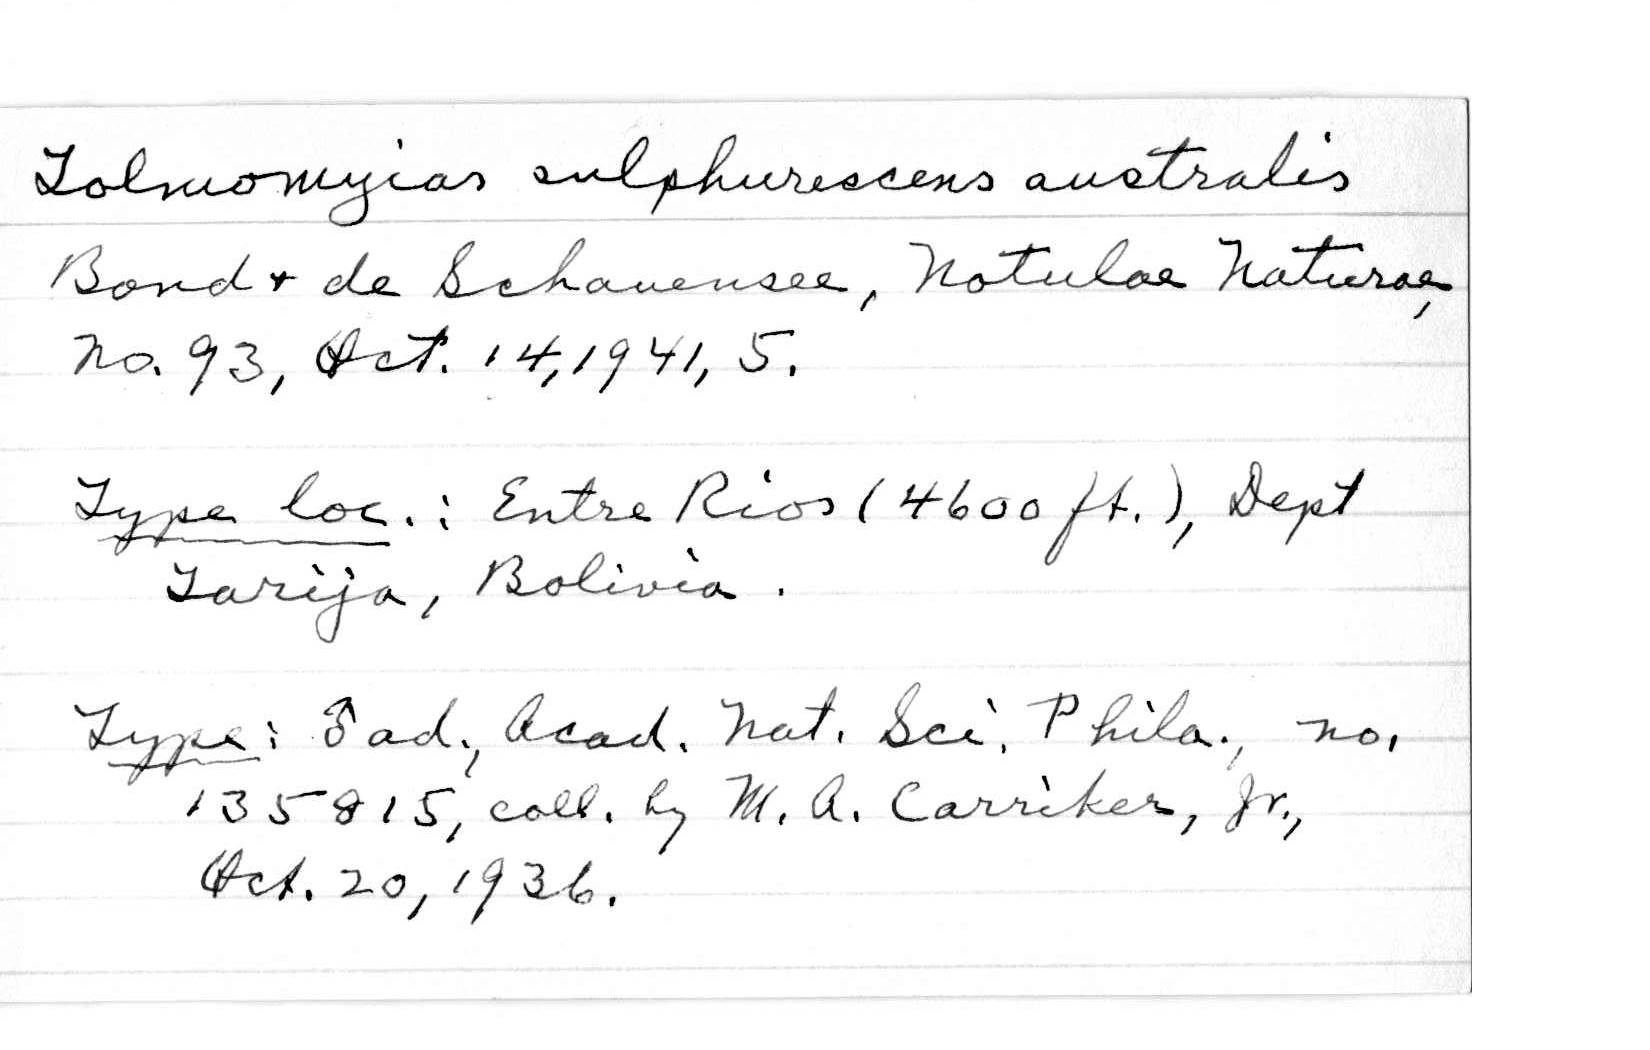 Tolmomyias sulphurescens australis
Bond & de Schauensee, Notulae Naturae,
No. 93, Oct. 14, 1941, 5.
Type loc.: Entre Rios (4600 ft.), Dept
Tarija, Bolivia.
Type: ♂ ad., Acad. Nat. Sci. Phila., no.
135815, coll. by M. A. Carriker, Jr.,
Oct. 20, 1936.